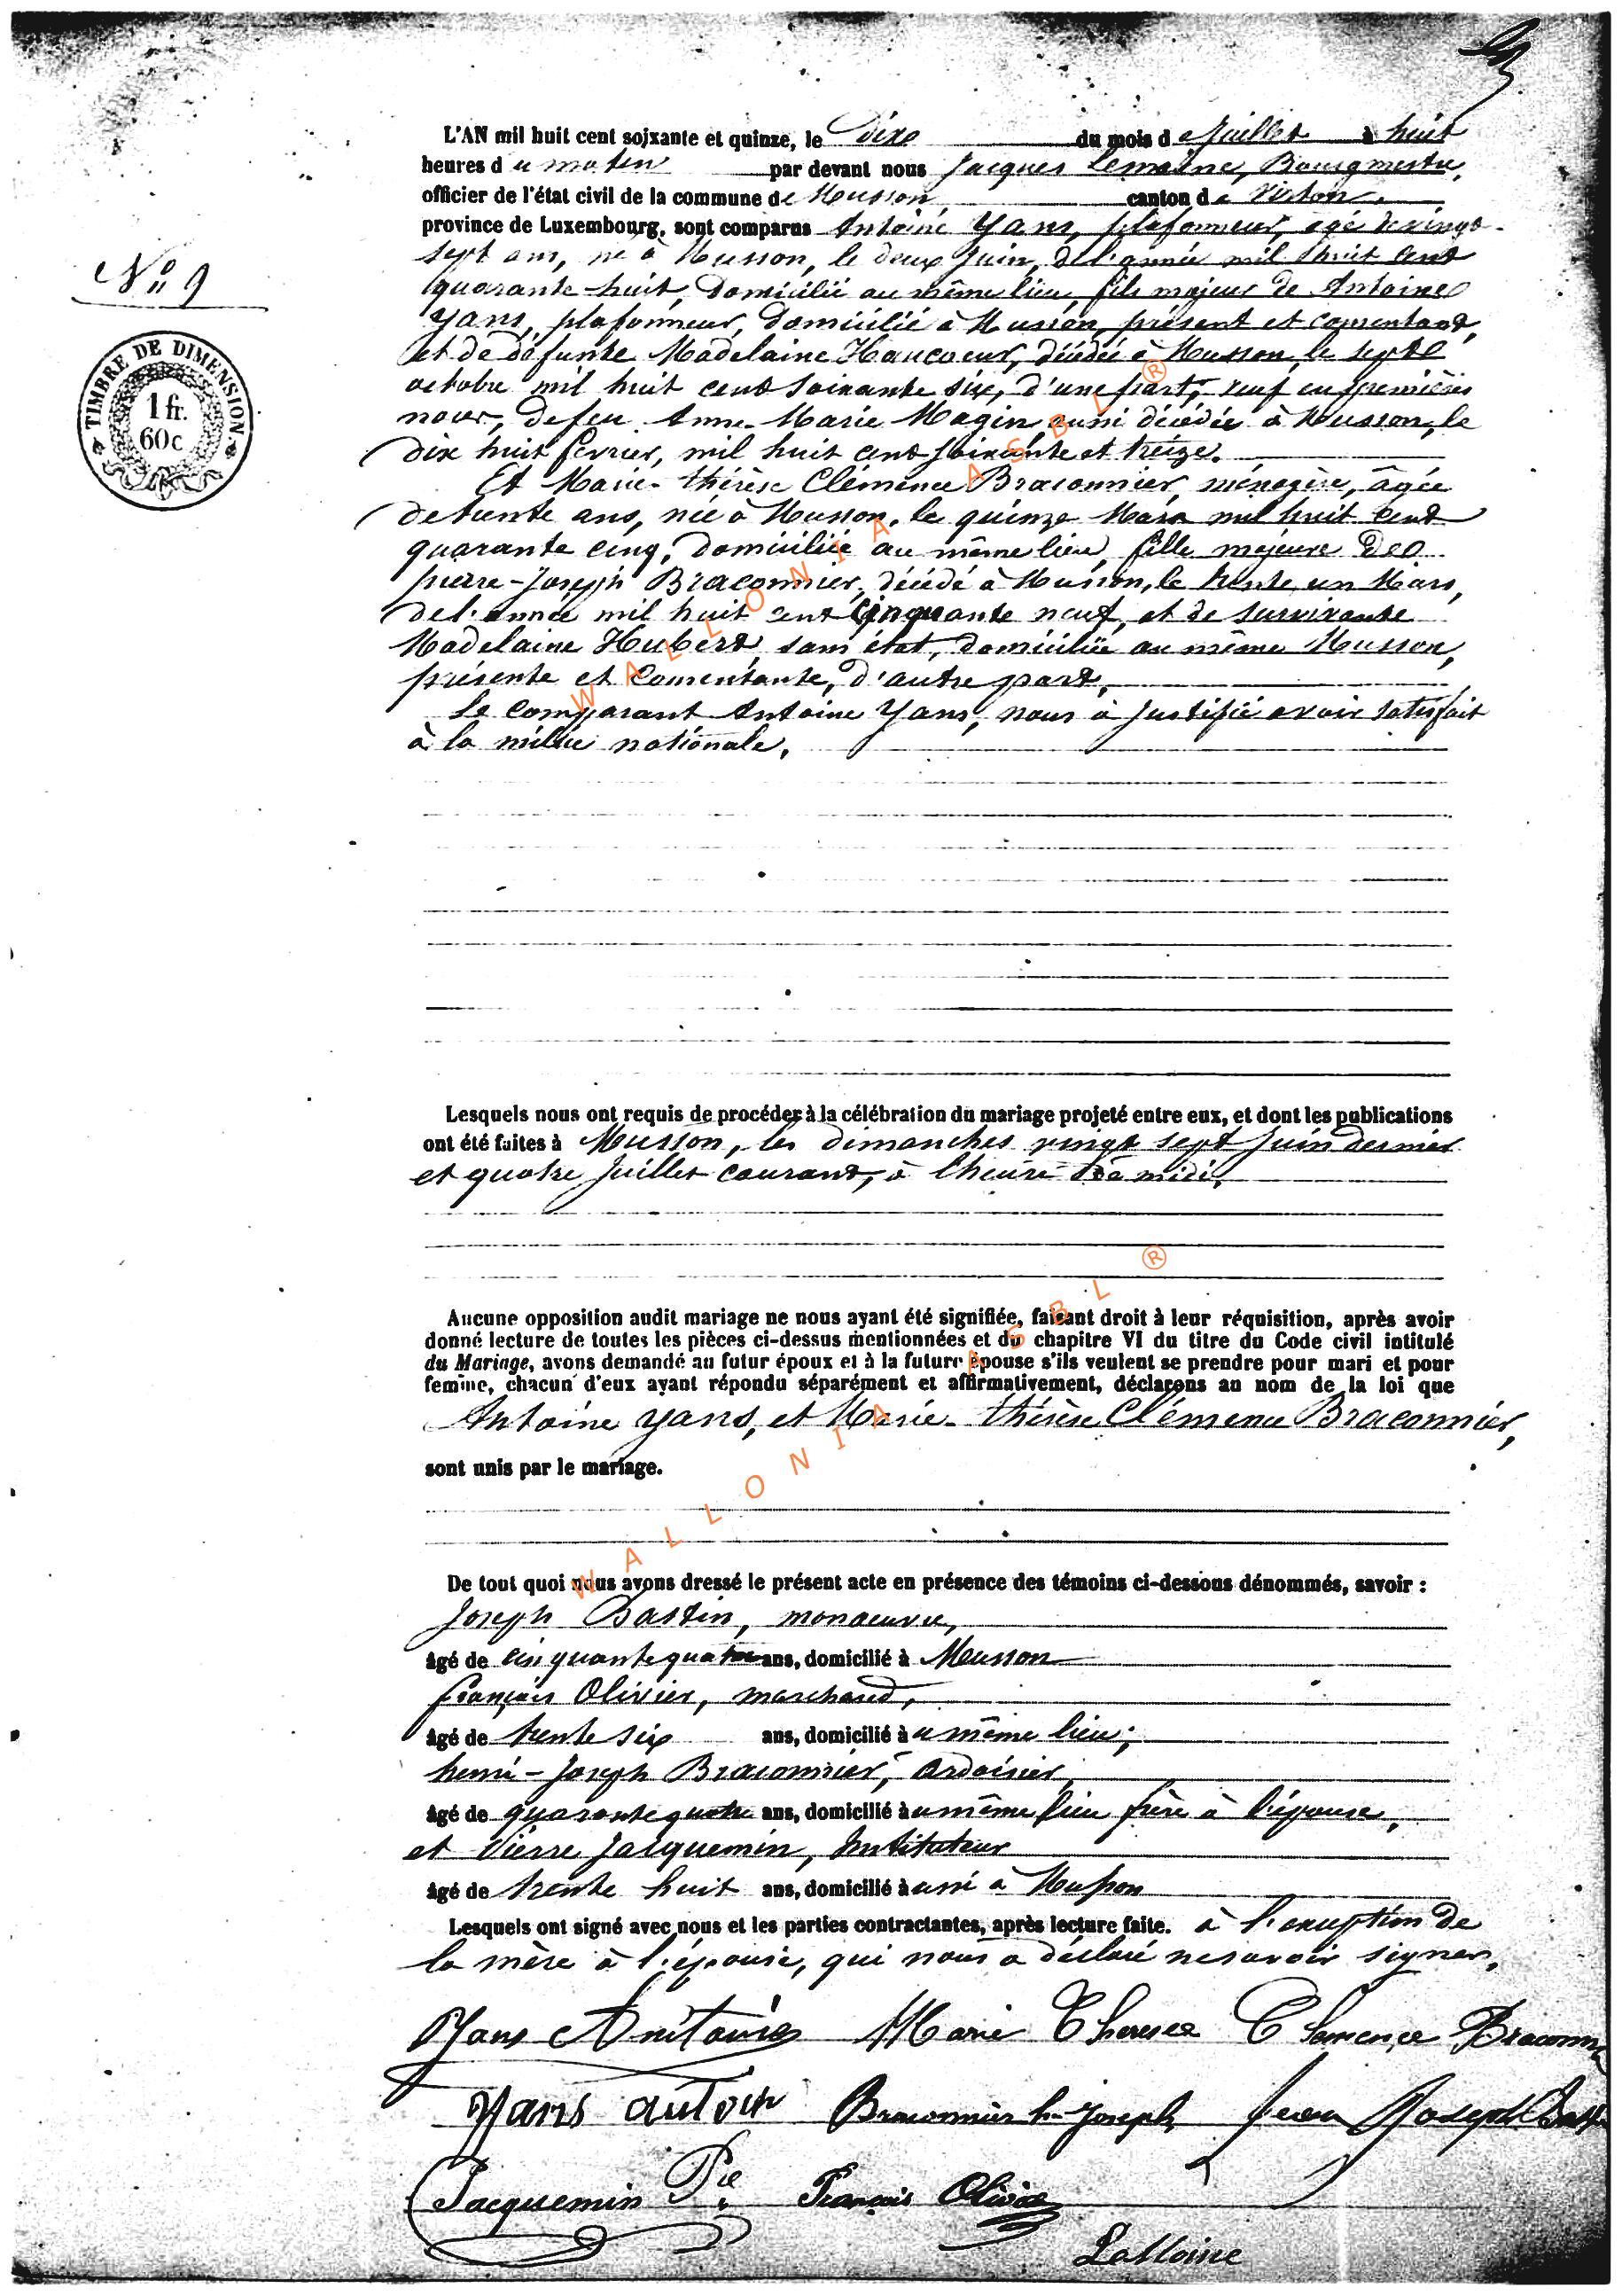 L'AN mil huit cent soixante et quinze, le dixe du mois de Juillet à huit
heures du matin par devant nous Jacques Lemoine, Bourgmestre,
officier de l'état civil de la commune de Musson, canton de Virton,
province de Luxembourg, sont comparus Antoine Yans, plafonneur, agé de vingt-
sept ans, né à Musson, le deux Juin, de l'année mil huit cent
N° 9
quarante-huit, Domicilié au même lieu, fils majeur de Antoine
Yans, plafonneur, Domicilié à Musson, présent et consentant,
et de défunte Madelaine Haucoeur, décédée à Musson, le sept
octobre mil huit cent soixante six, d'une part, veuf en premières
noces, de feu Anne-Marie Magin, aussi décédée à Musson, le
dix huit fevrier, mil huit cent soixante et treize.
TIMBRE DE DIMENSION
1 fr.
60c
Et Marie-thérèse Clémence Braconnier, ménagère, âgée
de trente ans, née à Musson, le quinze Mars mil huit cent
quarante cinq, Domiciliée au même lieu, fille majeure de
pierre-Joseph Braconnier, décédé à Musson, le trente un Mars,
de l'année mil huit cent Cinquante neuf, et de survivante
Madelaine Hubert sans état, domiciliée au même Musson,
présente et Consentante, d'autre part,
Le comparant Antoine Yans, nous à Justifié avoir satisfait
à la milice nationale.
Lesquels nous ont requis de procéder à la célébration du mariage projeté entre eux, et dont les publications
ont été faites à Musson, les dimanches vingt sept Juin dernier
et quatre Juillet courant, à l'heure de midi.
Aucune opposition audit mariage ne nous ayant été signifiée, faisant droit à leur réquisition, après avoir
donné lecture de toutes les pièces ci-dessus mentionnées et du chapitre VI du titre du Code civil intitulé
du Mariage, avons demandé au futur époux et à la future épouse s'ils veulent se prendre pour mari et pour
femme, chacun d'eux ayant répondu séparément et affirmativement, déclarons au nom de la loi que
Antoine Yans, et Marie-thérèse Clémence Braconnier,
sont unis par le mariage.
De tout quoi nous avons dressé le présent acte en présence des témoins ci-dessous dénommés, savoir :
Joseph Bastin, manoeuvre,
âgé de cinquante quatre ans, domicilié à Musson
françois Olivier, marchand,
âgé de trente six ans, domicilié au même lieu;
henri-Joseph Braconnier, ardoisier
âgé de quarante quatre ans, domicilié au même lieu frère à l'épouse,
et Pierre Jacquemin, Instituteur
âgé de trente huit ans, domicilié aussi à Musson
Lesquels ont signé avec nous et les parties contractantes, après lecture faite. à l'exception de
la mère à l'épouse, qui nous a déclaré ne savoir signer.
Yans Antoine Marie Therese Clemence Braconn
Yans antoin Braconnier h-Joseph Jean Joseph Bast
Jacquemin Pre François Olivier
Lemoine
WALLONIA ASBL ®
WALLONIA ASBL ®